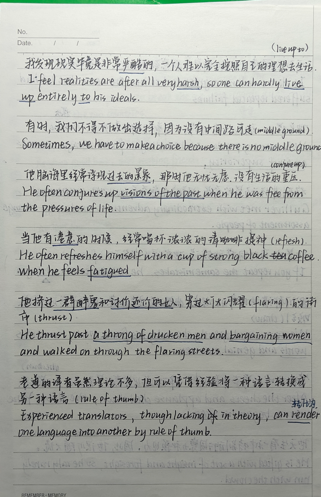 No.
Date
(live up to)
我发现现实毕竟是非常严酷的，一个人难以完全按照自己的理想去生活.
I feel realities are after all very harsh, so one can hardly live
up entirely to his ideals.
有时，我们不得不做出选择，因为没有中间路可走 (middle ground)
Sometimes, we have to make a choice because there is no middle ground
(conjure up)
他脑海里经常浮现过去的景象，那时他无忧无虑，没有生活的重压
He often conjures up visions of the past when he was free from
the pressures of life.
当他有倦意的时候，经常喝杯浓浓的咖啡提神 (refresh)
He often refreshes himself with a cup of strong black tea coffee
when he feels fatigued
他挤过一群醉汉和讨价还价的女人，穿过灯火闪耀 (flaring) 的街
市 (thrust)
He thrust past a throng of drucken men and bargaining women
and walked on through the flaring streets.
老道的译者虽然理论不多，但可以凭借经验将一种语言转换成
另一种语言 (rule of thumb)
Experienced translators, though lacking of in theory, can render
one language into another by rule of thumb.